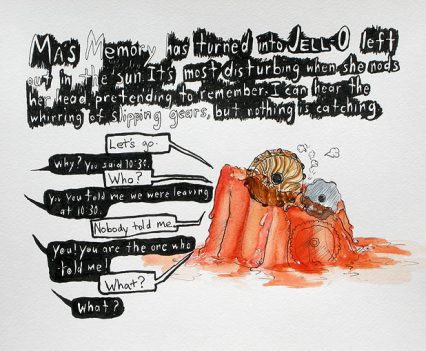 Ma's Memory has turned into Jell-O left
out in the sun. It's most disturbing when she nods
her head pretending to remember. I can hear the
whirring of slipping gears, but nothing is catching.
Let's go.
Why? You said 10:30.
Who?
You you told me we were leaving
at 10:30.
Nobody told me.
You! you are the one who
told me!
What?
What?